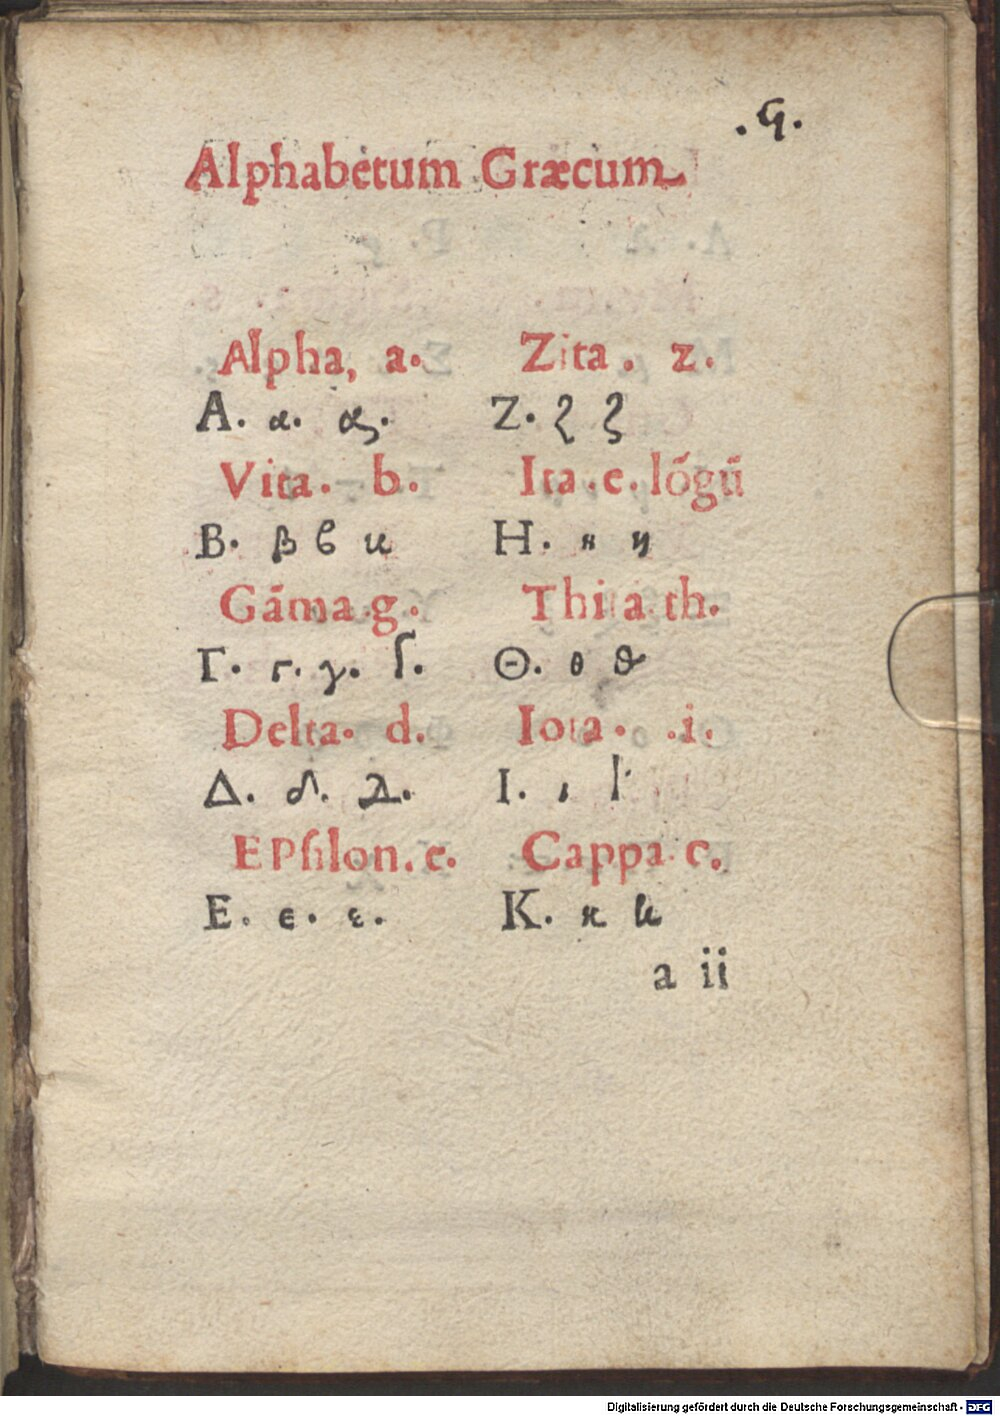 .G.
Alphabetum Græcum
Alpha, a.
Α. α. ας.
Vita. b.
Β. β ϐ
Gāma.g.
Γ. γ.
Delta. d.
Δ. δ.
EPſilon.e.
Ε. ϵ. ε.
Zita. z.
Ζ. ζ ζ
Ita.e. lōgū
Η. н η
Thita th.
Θ. θ ϑ
Iota. .i.
Ι. ι
Cappa c.
Κ. κ
a ii
Digitalisierung gefördert durch die Deutsche Forschungsgemeinschaft - DFG